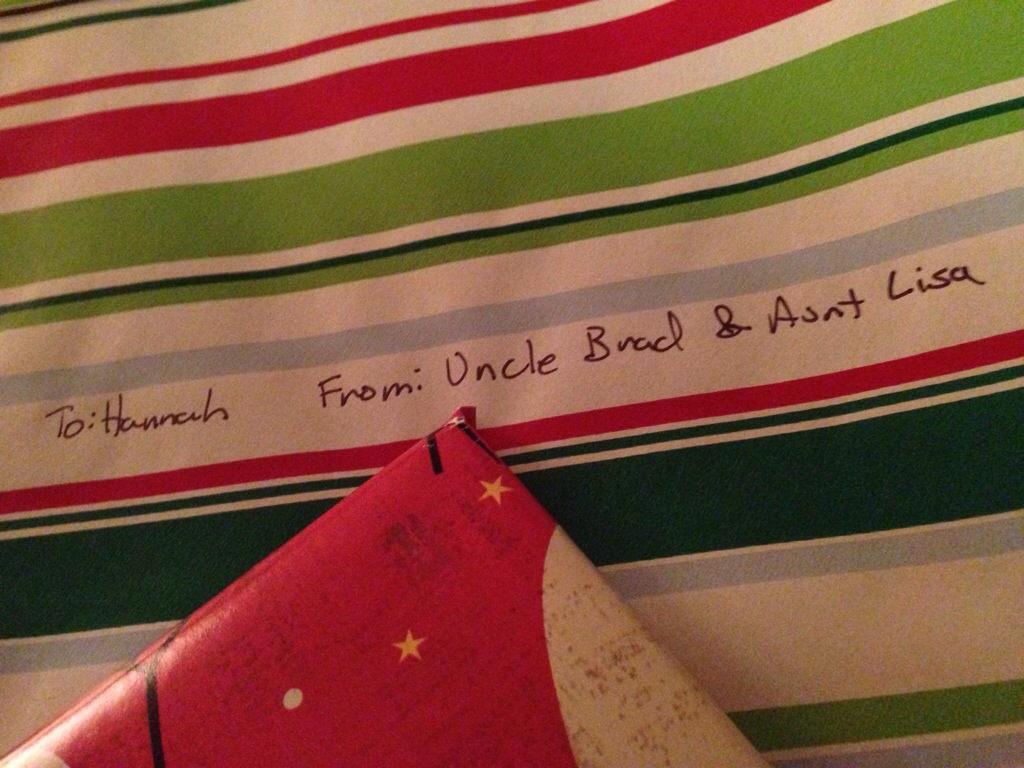 To: Hannah From: Uncle Brad & Aunt Lisa